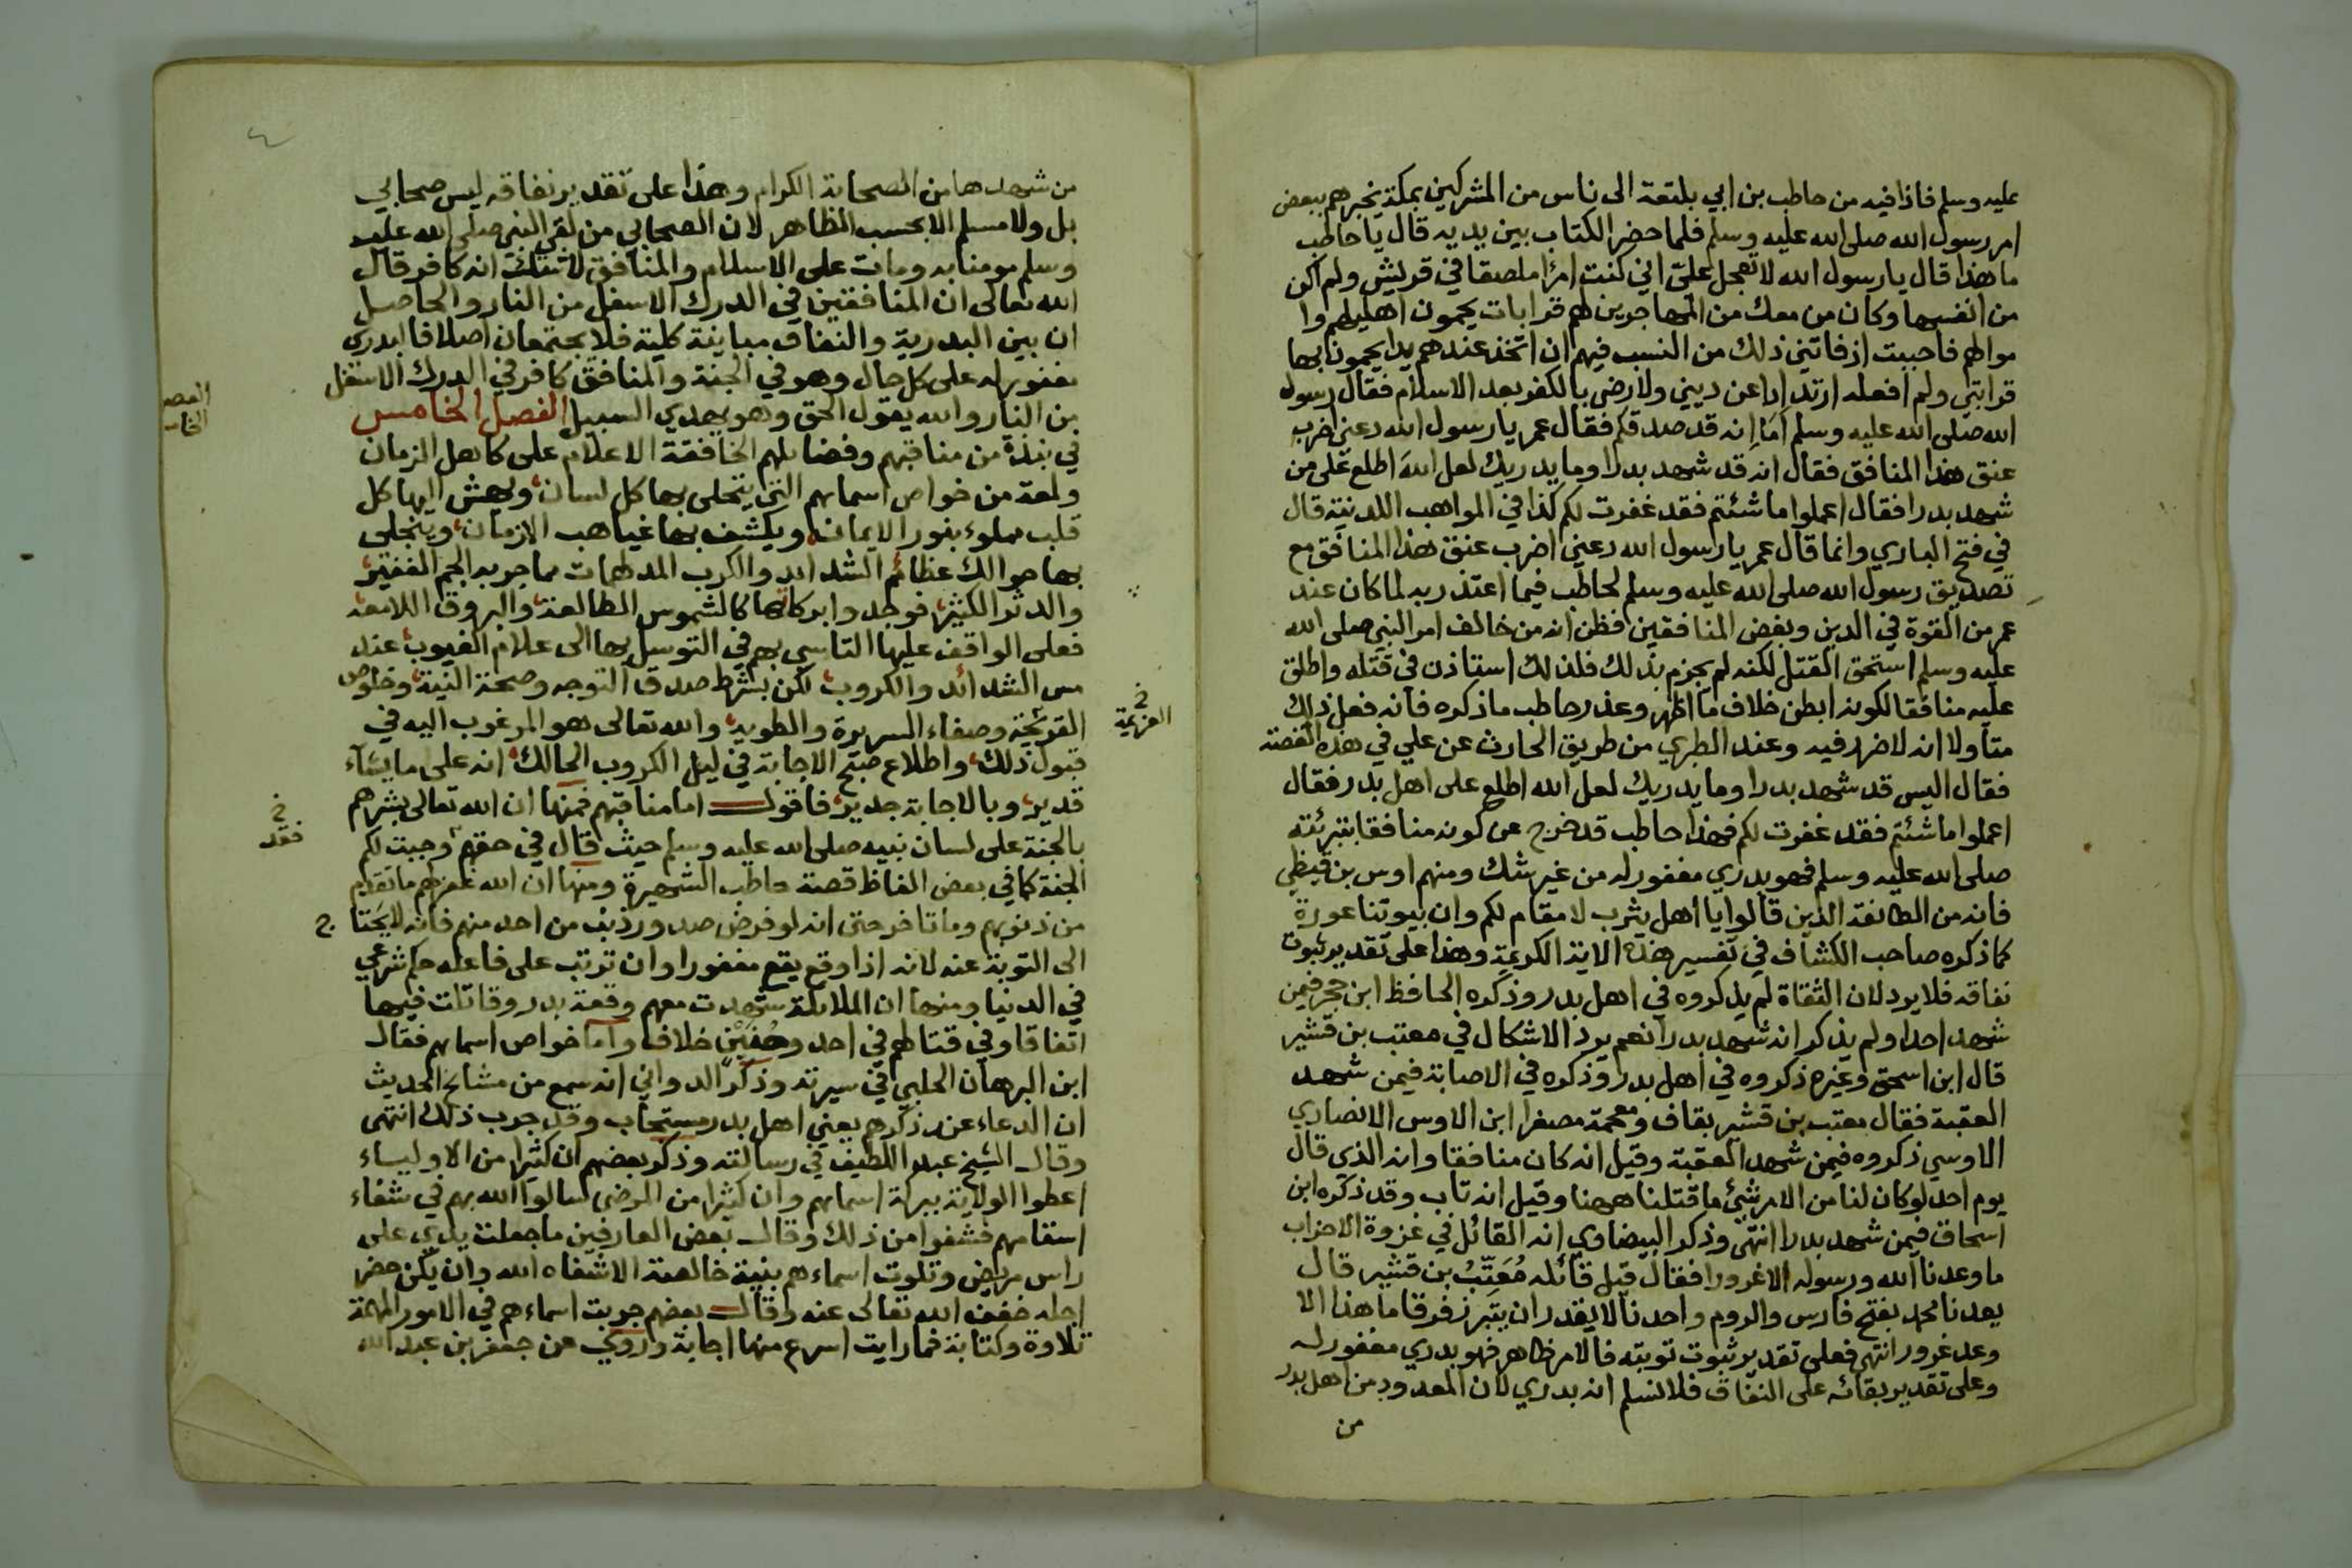 عليه وسلم فاذا فيه من حاطب بن ابي بلتعة الى ناس من المشركين بمكة يخبرهم ببعض
امر رسول الله صلى الله عليه وسلم فلما حضر الكتاب بين يديه قال يا حاطب
ما هذا قال يا رسول الله لا تعجل عليّ اني كنت امرًا ملصقا في قريش ولم اكن
من انفسها وكان من معك من المهاجرين لهم قرابات يحمون اهليهم وا
موالهم فاحببت اذ فاتني ذلك من النسب فيهم ان اتخذ عندهم يدا يحمون بها
قرابتي ولم افعله ارتدادا عن ديني ولا رضى بالكفر بعد الاسلام فقال رسول
الله صلى الله عليه وسلم اَمَا اِنه قد صدقكم فقال عمر يا رسول الله دعني اضرب
عنق هذا المنافق فقال انه قد شهد بدرا وما يدريك لعل الله اطلع على من
شهد بدرا فقال اعملوا ما شئتم فقد غفرت لكم كذا في المواهب اللدنية قال
في فتح الباري وانما قال عمر يا رسول الله دعني اضرب عنق هذا المنافق مع
تصديق رسول الله صلى الله عليه وسلم لحاطب فيما اعتذر به لما كان عند
عمر من القوة في الدين وبغض المنافقين فظن انه من خالف امر النبي صلى الله
عليه وسلم استحق القتل لكنه لم يجزم بذلك فلذلك استاذن في قتله واطلق
عليه منافقا لكونه ابطن خلاف ما اظهر وعذر حاطب ما ذكره فانه فعل ذلك
متاولا انه لا ضرر فيه وعند الطبري من طريق الحارث عن علي في هذه القصة
فقال اليس قد شهد بدرا وما يدريك لعل الله اطلع على اهل بدر فقال
اعملوا ما شئتم فقد غفرت لكم فهذا حاطب قد خرج عن كونه منافقا بتبرئته
صلى الله عليه وسلم فهو بدري مغفور له من غير شك ومنهم اوس بن قيظي
فانه من الطائفة الذين قالوا يا اهل يثرب لا مقام لكم وان بيوتنا عورة
كما ذكره صاحب الكشاف في تفسير هذه الاية الكريمة وهذا على تقدير ثبوت
نفاقه فلا يرد لان الثقاة لم يذكروه في اهل بدر وذكره الحافظ ابن حجر فيمن
شهد احدا ولم يذكر انه شهد بدرا نعم يرد الاشكال في معتب بن قشير
قال ابن اسحق وغيره ذكروه في اهل بدر وذكره في الاصابة فيمن شهد
العقبة فقال معتب بن قشير بقاف ومعجمة مصغرا ابن الاوس الانصاري
الاوسي ذكروه فيمن شهد العقبة وقيل انه كان منافقا وانه الذي قال
يوم احد لو كان لنا من الامر شئ ما قتلنا ههنا وقيل انه تاب وقد ذكره ابن
اسحاق فيمن شهد بدرا انتهى وذكر البيضاوي انه القائل في غزوة الاحزاب
ما وعدنا الله ورسوله الا غرورا فقال قيل قائله مُعَتِّبُ بن قشير قال
يعدنا محمد بفتح فارس والروم واحدنا لا يقدر ان يتبرز فرقا ما هذا الا
وعد غرور انتهى فعلى تقدير ثبوت توبته فالامر ظاهر فهو بدري مغفور له
وعلى تقدير بقائه على النفاق فلا نسلم انه بدري لان المعدود من اهل بدر
من
من شهدها من الصحابة الكرام وهذا على تقدير نفاقه ليس صحابي
بل ولا مسلم الا بحسب الظاهر لان الصحابي من لقي النبي صلى الله عليه
وسلم مومنا به ومات على الاسلام والمنافق لا شك انه كافر قال
الله تعالى ان المنافقين في الدرك الاسفل من النار والحاصل
ان بين البدرية والنفاق مباينة كلية فلا يجتمعان اصلا فالبدري
مغفور له على كل حال وهو في الجنة والمنافق كافر في الدرك الاسفل
من النار والله يقول الحق وهو يهدي السبيل الفصل الخامس
الفصـ
الخامـ
في نبذة من مناقبهم وفضائلهم الخافقة الاعلام على كاهل الزمان
ولمعة من خواص اسمائهم التي يتحلى بها كل لسان ويهش اليها كل
قلب مملوء بنور الايمان ويكشف بها غياهب الازمان وينجلى
بها حوالك عظائم الشدائد والكرب المدلهمات مما جربه الجم الغفير
والدثر الكثير فوجدوا بركاتها كالشموس الطالعة والبروق اللامعة
فعلى الواقف عليها التاسي بهم في التوسل بها الى علام الغيوب عند
مس الشدائد والكروب لكن بشرط صدق التوجه وصحة النية وخلوص
القريحة وصفاء السريرة والطوية والله تعالى هو المرغوب اليه في
العزيمة
قبول ذلك واطلاع صبح الاجابة في ليل الكروب الحالك انه على ما يشآء
قدير وبالاجابة جدير فاقول اما مناقبهم فمنها ان الله تعالى بشرهم
بالجنة على لسان نبيه صلى الله عليه وسلم حيث قال في حقهم وجبت لكم
فقد
الجنة كما في بعض الفاظ قصة حاطب الشهيرة ومنها ان الله غفر لهم ما تقدم
من ذنوبهم وما تاخر حتى انه لو فرض صدور ذنب من احد منهم فانه لا يحتا ج
الى التوبة عنه لانه اذا وقع يقع مغفورا وان ترتب على فاعله حكم شرعي
في الدنيا ومنها ان الملائكة شهدت معهم وقعة بدر وقاتلت فيها
اتفاقا وفي قتالهم في احد وحُنَيْن خلاف واما خواص اسمائهم فقال
ابن البرهان الحلبي في سيرته وذكر الدواني انه سمع من مشايخ الحديث
ان الدعاء عند ذكرهم يعني اهل بدر مستجاب وقد جرب ذلك انتهى
وقال الشيخ عبد اللطيف في رسالته وذكر بعضهم ان كثيرا من الاولياء
اعطوا الولاية ببركة اسمائهم وان كثيرا من المرضى سالوا الله بهم في شفاء
اسقامهم فشفوا من ذلك وقال بعض العارفين ما جعلت يدي على
راس مريض وتلوت اسماءهم بنية خالصة الا شفاه الله وان يكن حضر
اجله خفف الله تعالى عنه وقال بعضهم جربت اسماءهم في الامور المهمة
تلاوة وكتابة فما رايت اسرع منها اجابة وروي عن جعفر بن عبد الله